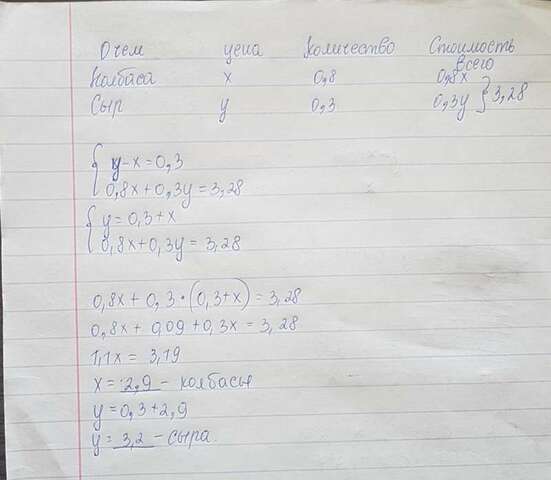 О чем цена Количество Стоимость
Всего
Колбаса x 0,8 0,8x
Сыр y 0,3 0,3y } 3,28
{ y-x=0,3
0,8x+0,3y=3,28
{ y=0,3+x
0,8x+0,3y=3,28
0,8x+0,3·(0,3+x)=3,28
0,8x+0,09+0,3x=3,28
1,1x=3,19
x=2,9 - колбасы
y=0,3+2,9
y=3,2 - сыра